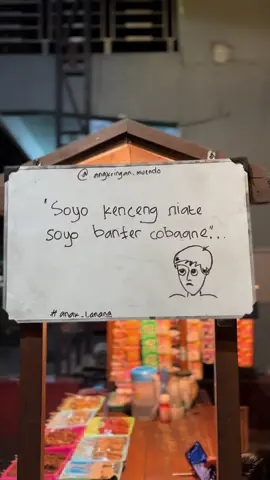 @angkringan_moendo
"Soyo kenceng niate
soyo banter cobaane"...
#anak_lanang